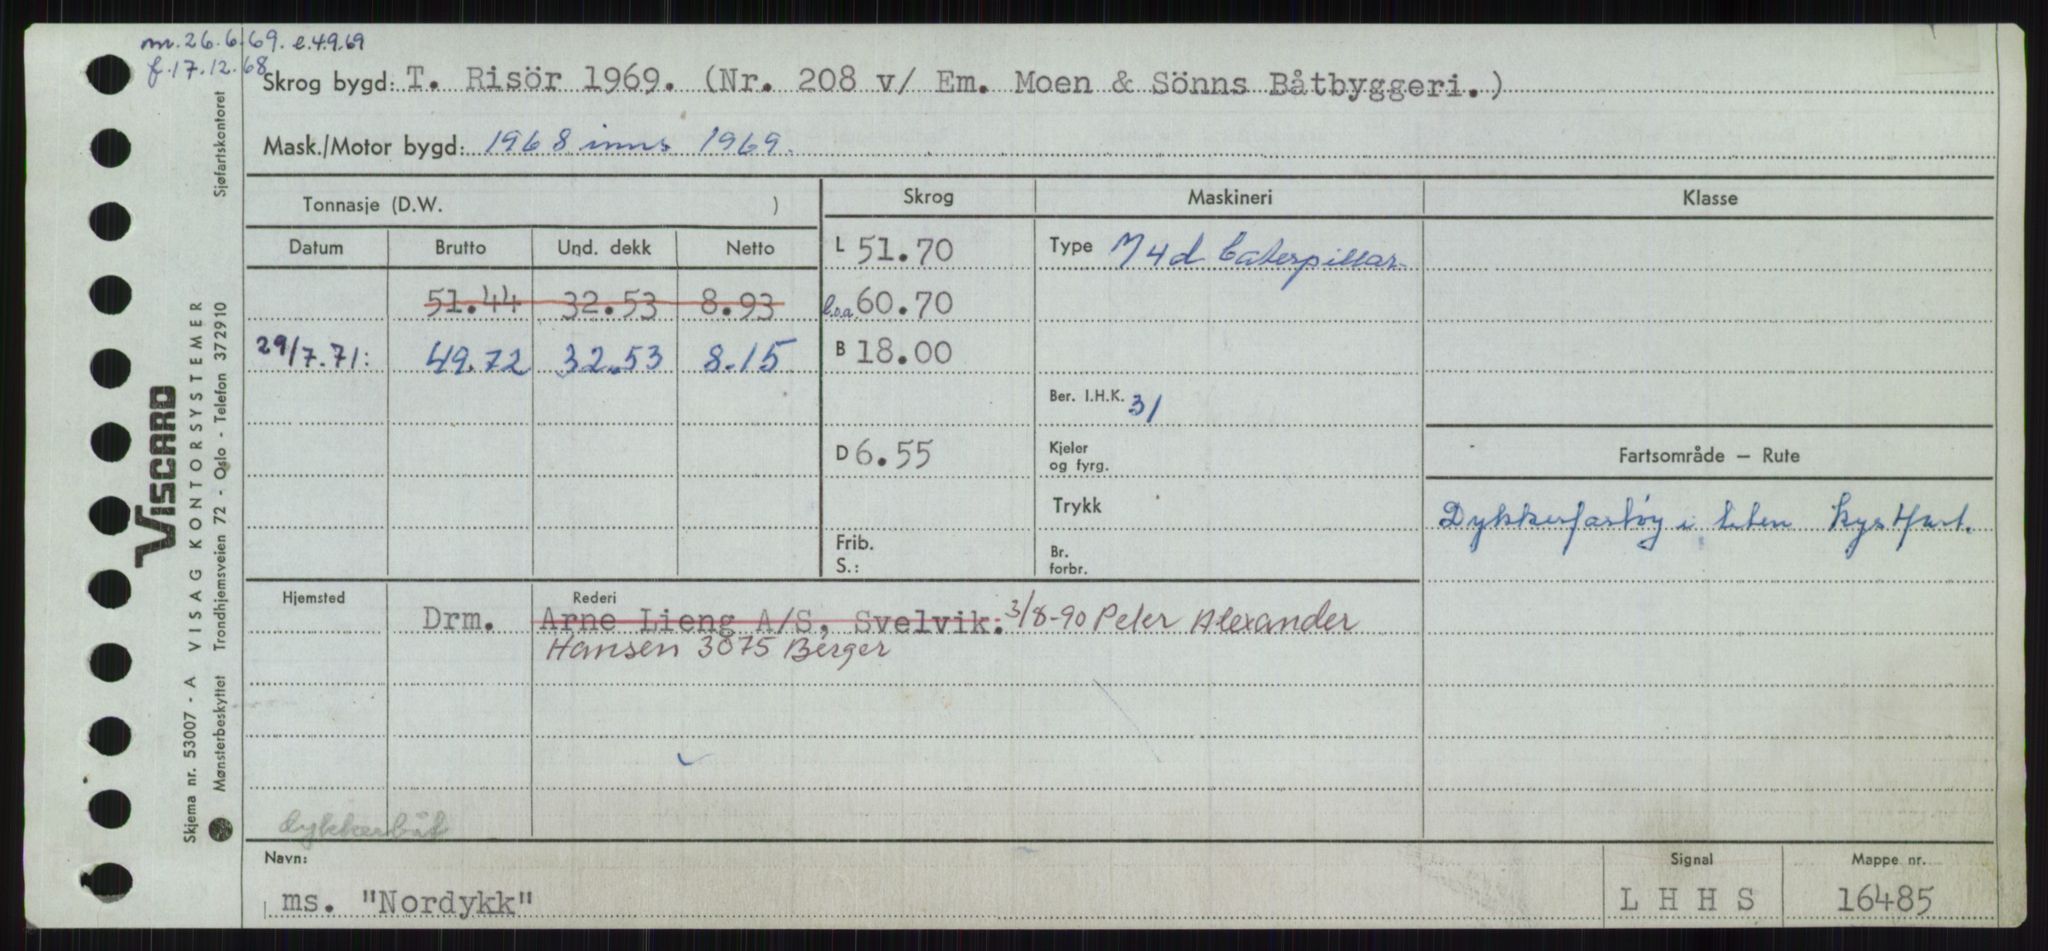 m. 26.6.69. e.4.9.69
f. 17.12.68
Skrog bygd: T. Risör 1969. (Nr. 208 v/ Em. Moen & Sönns Båtbyggeri.)
Mask./Motor bygd: 1968 inns 1969.
Tonnasje (D.W. )
Skrog Maskineri Klasse
Datum Brutto Und. dekk Netto
L 51.70 Type M 4 d Caterpillar
51.44 32.53 8.93
l.o.a. 60.70
29/7.71: 49.72 32.53 8.15
B 18.00
Ber. I.H.K. 31
D 6.55
Kjeler
og fyrg.
Fartsområde — Rute
Trykk
Dykkerfartöy i liten kystfart.
Frib.
S.:
Br.
forbr.
Hjemsted Rederi
Drm. Arne Lieng A/S, Svelvik. 3/8-90 Peter Alexander
Hansen 3075 Berger
dykkerbåt
Navn: Signal Mappe nr.
ms. "Nordykk" L H H S 16485
VISCARD
Skjema nr. 53007 - A VISAG KONTORSYSTEMER
Mønsterbeskyttet Trondhjemsveien 72 - Oslo - Telefon 372910 Sjøfartskontoret